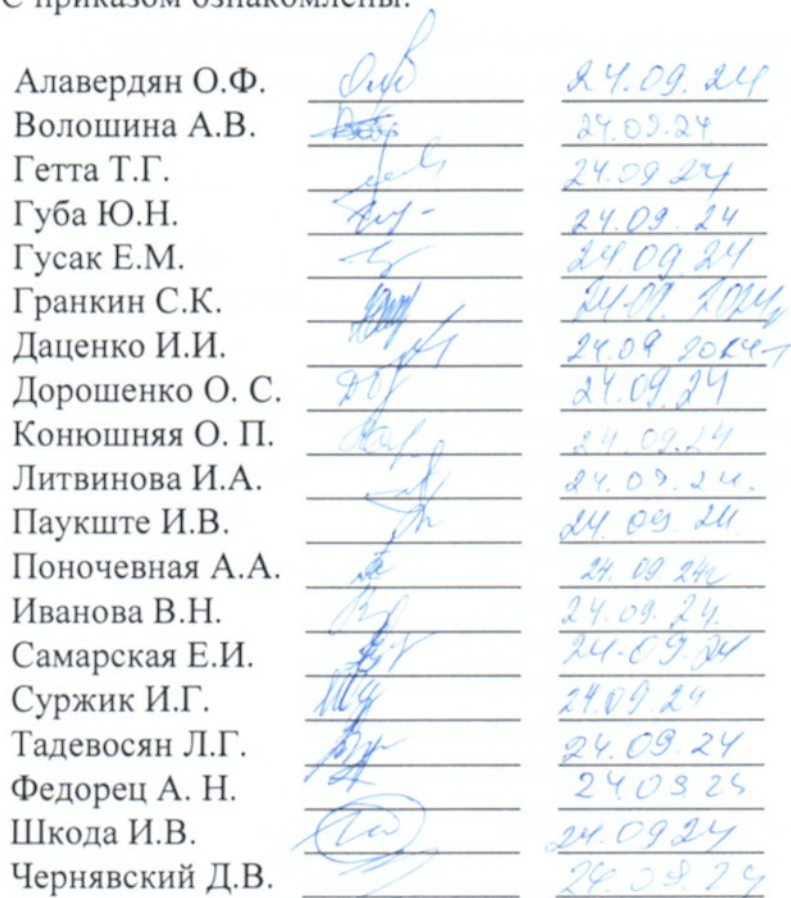 С приказом ознакомлены:
Алавердян О.Ф. 24.09.24
Волошина А.В. 24.09.24
Гетта Т.Г. 24.09 24
Губа Ю.Н. 24.09.24
Гусак Е.М. 24 09 24
Гранкин С.К. 24.09. 2024
Даценко И.И. 24.09 2024
Дорошенко О. С. 24.09.24
Конюшняя О. П. 24.09.24
Литвинова И.А. 24.09.24.
Паукште И.В. 24. 09. 24
Поночевная А.А. 24. 09. 24
Иванова В.Н. 24.09.24.
Самарская Е.И. 24.09.24
Суржик И.Г. 24.09.24
Тадевосян Л.Г. 24.09.24
Федорец А. Н.
Шкода И.В. 24.0924
Чернявский Д.В. 24.09.24